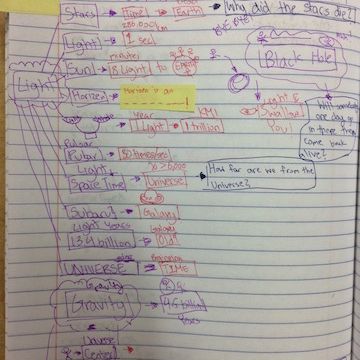 Stars → Time → Earth → Why did the stars die?
280,000 km
BYE BYE!
Light → 1 sec
Black Hole
minutes
Sun → 8 Light to Earth
Light
Horizon → Horizon is an
Light &
Swallow
You
Will someone
one day go
in there
come
back
alive?
Year
KM!
1 Light → 1 trillion
Pulsar
Pulsar → 30 times/sec
Light
Space Time → Universe
How far are we from the
Universe?
Subaru → Galaxy
Light Years
Galaxy
13.4 billion → Old
Beginning
UNIVERSE = TIME
Gravity
Gravity → 46 billion
Years
Universe
Center →